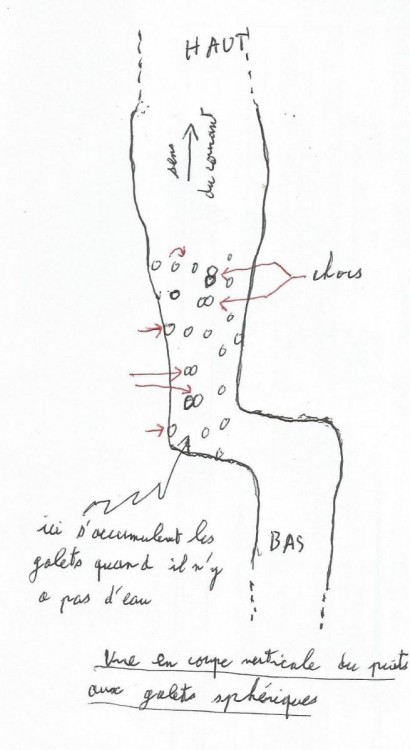 HAUT
sens
du courant
chocs
ici s'accumulent les
galets quand il n'y
a pas d'eau
BAS
Vue en coupe verticale du puits
aux galets sphériques